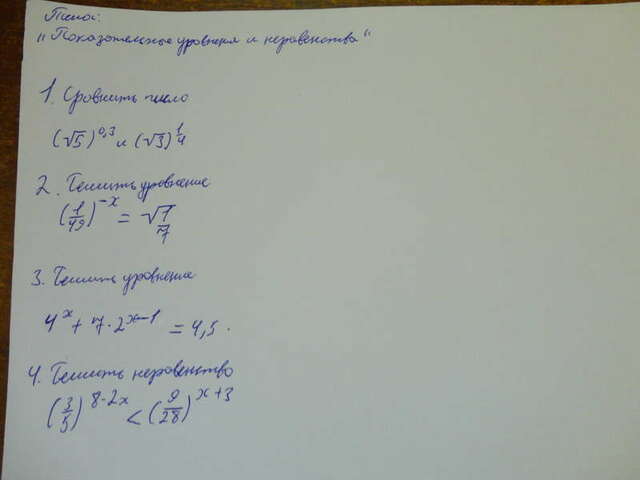 Тема:
"Показательные уровнения и неровенства"
1. Сровнить число
(√5)^0,3 и (√3)^1/4
2. Решить уровнение
(1/49)^-x = √1/7
3. Решить уровнение
4^x + 7·2^x-1 = 4,5.
4. Решить неровенство
(3/5)^8-2x < (9/28)^x+3